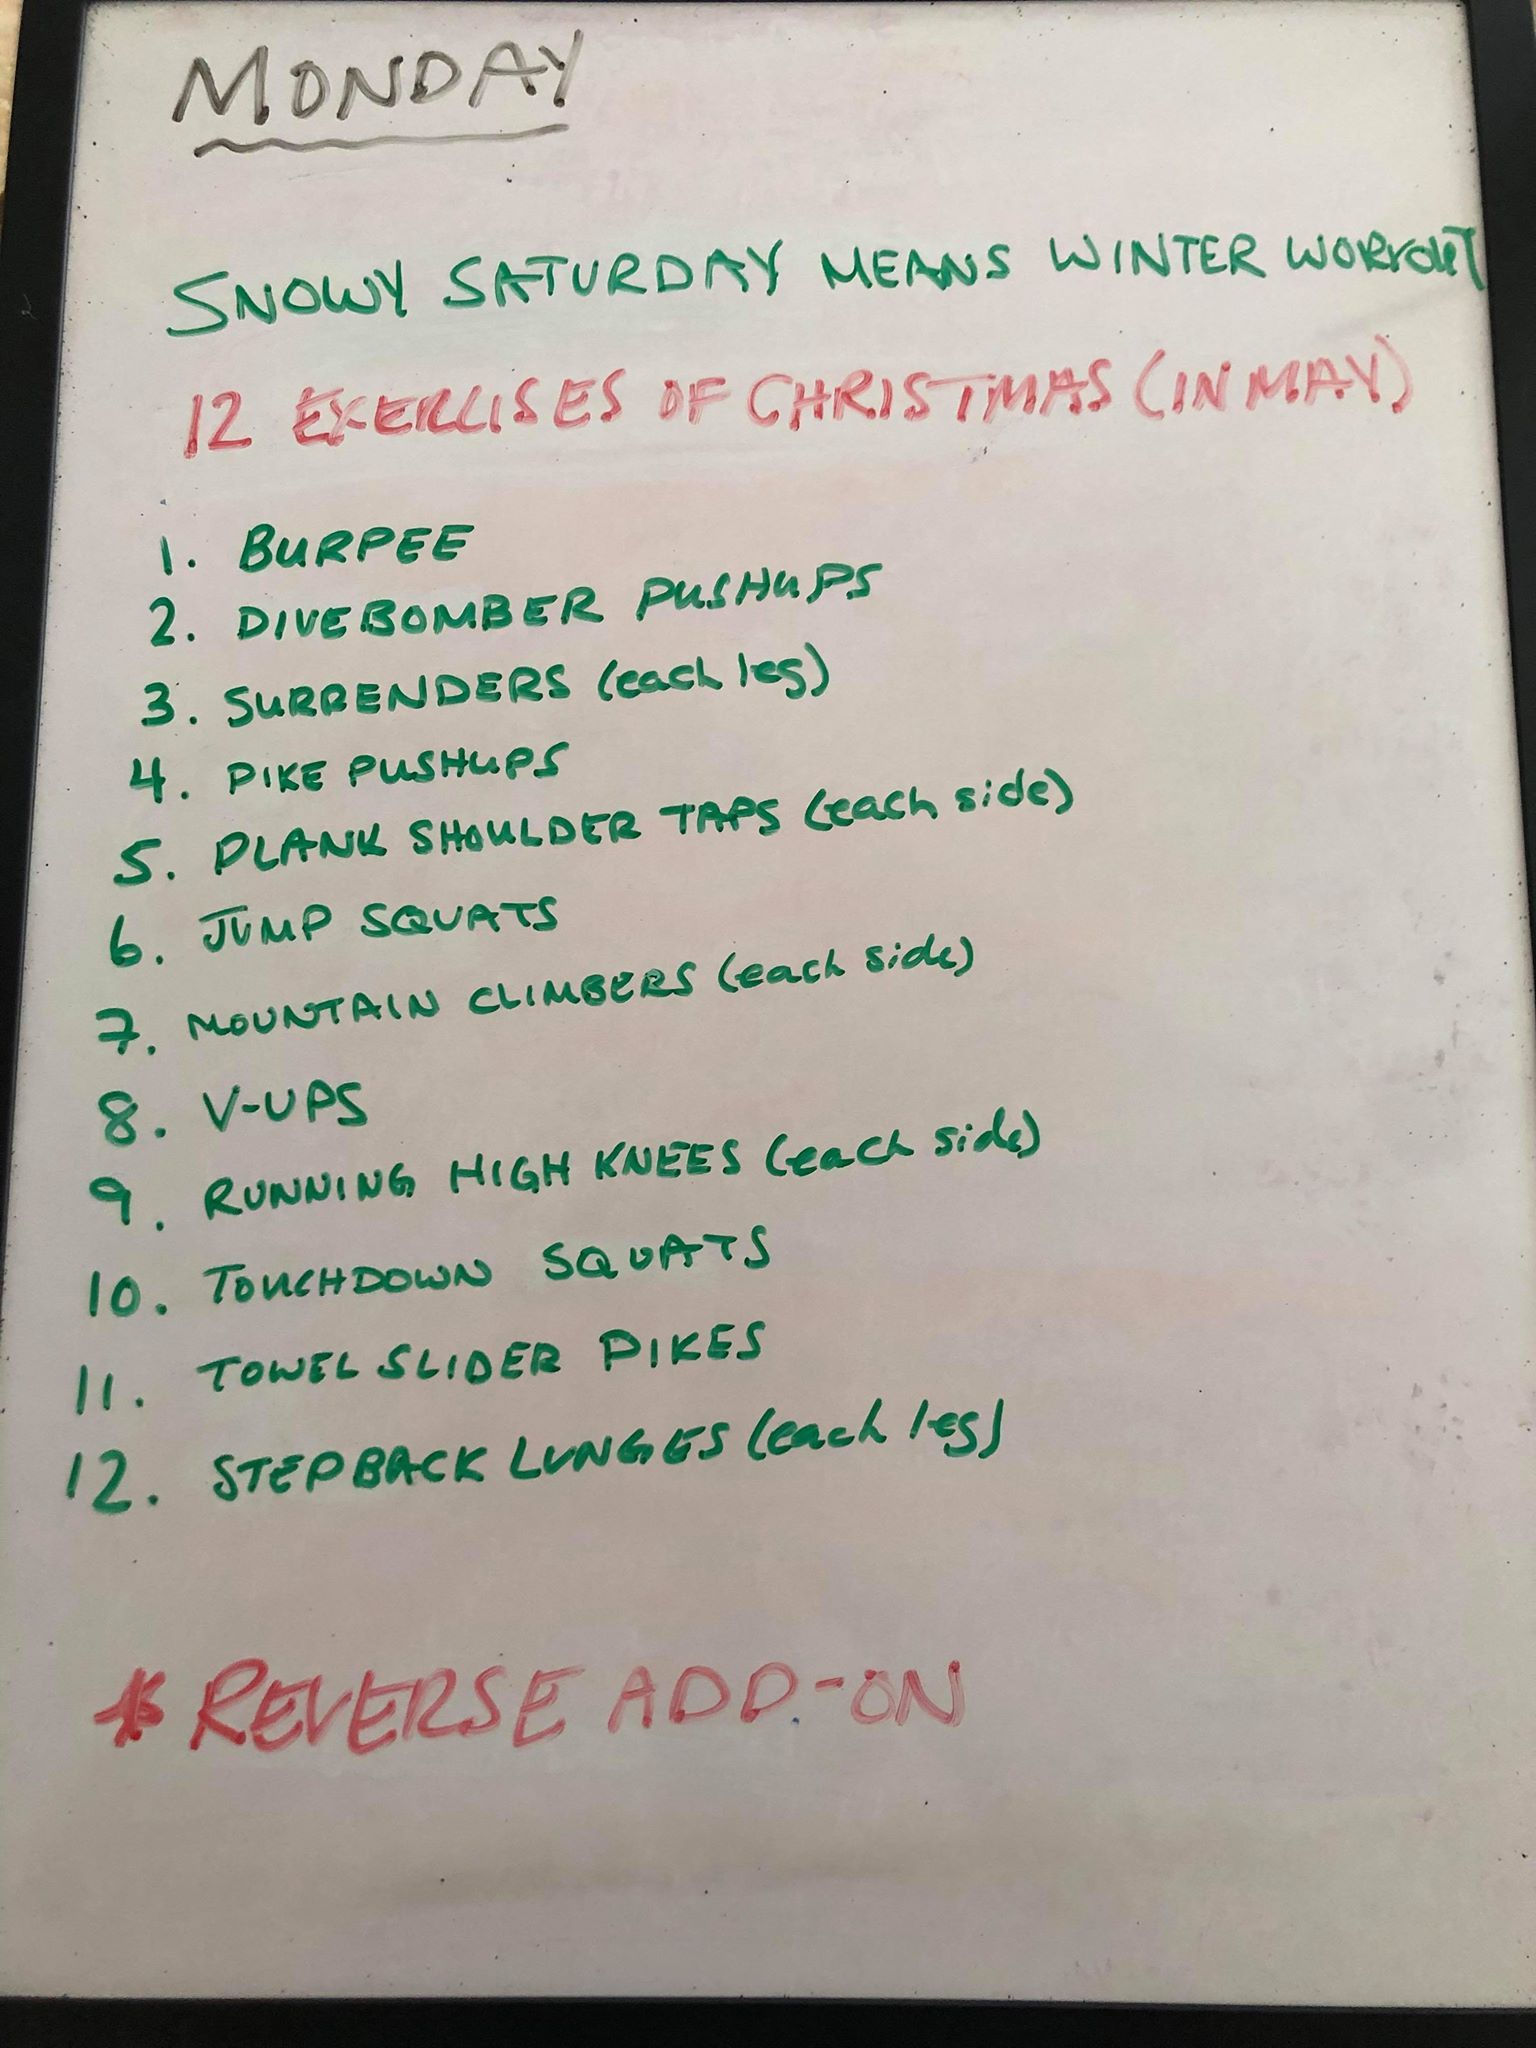 MONDAY
SNOWY SATURDAY MEANS WINTER WORKOUT
12 EXERCISES OF CHRISTMAS (IN MAY)
1. BURPEE
2. DIVEBOMBER PUSHUPS
3. SURRENDERS (each leg)
4. PIKE PUSHUPS
5. PLANK SHOULDER TAPS (each side)
6. JUMP SQUATS
7. MOUNTAIN CLIMBERS (each side)
8. V-UPS
9. RUNNING HIGH KNEES (each side)
10. TOUCHDOWN SQUATS
11. TOWEL SLIDER PIKES
12. STEPBACK LUNGES (each leg)
* REVERSE ADD-ON